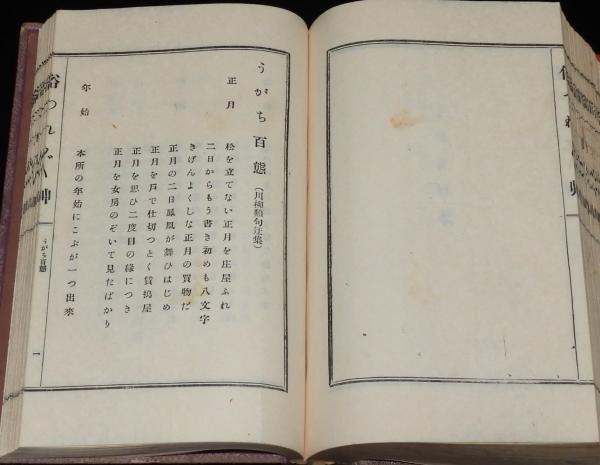 うがち百態（川柳類句注集）
正月
松を立てない正月を庄屋ふれ
二日からもう書き初めも八文字
きげんよくしな正月の買物だ
正月の二日鳳凰が舞ひはじめ
正月を戸で仕切つとく質搗屋
正月を思ひ二度目の縁につき
正月を女房のぞいて見たばかり
年始
本所の年始にこぶが一つ出來
うがち百態
一